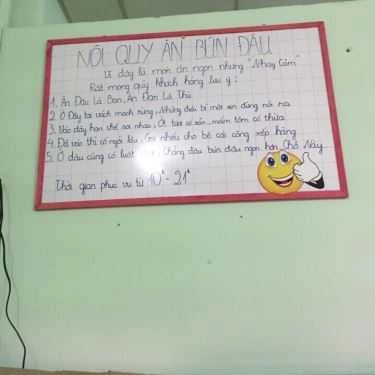 NỘI QUY ĂN BÚN ĐẬU
Vì đây là món ăn ngon nhưng "Nhạy Cảm"
Rất mong quý khách hàng lưu ý:
1. Ăn Đậu Là Bạn, Ăn Đạn Là Thù
2. Ở Đây tai vách mạch rừng, Những điều bí mật xin đừng nói ra
3. Vào đây hạn chế nhau, Ớt tỏi có sẵn...mắm tôm có thừa
4. nhiều cho bể cái công xếp hàng
5. Ở đâu cũng có luật chẳng đâu bún đậu ngon hơn Chỗ Này
Thời gian phục vụ từ 10h - 21h